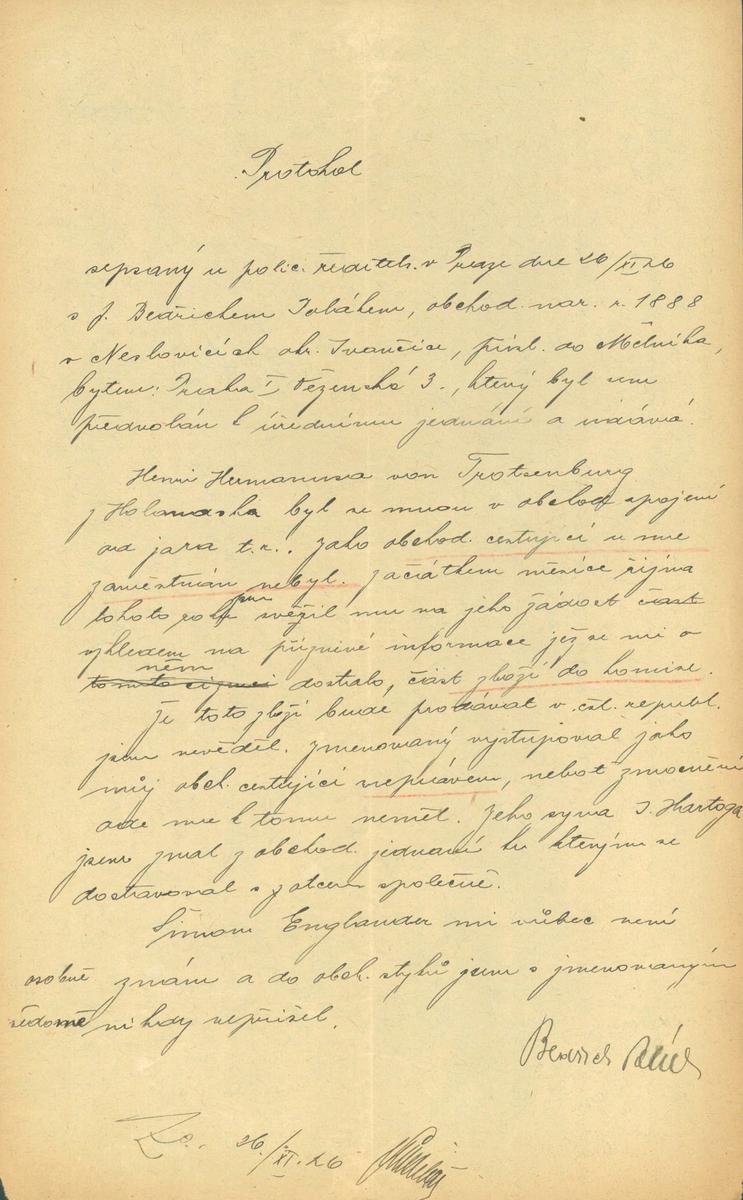 Protokol
sepsaný u polic. ředitels. v Praze dne 26/XI 26
s p. Bedřichem , obchod. nar. r. 1888
v Neslovicích okr. Ivančice, přísl. do Mělníka,
bytem: Praha I Vězenská 3., který byl sem
předvolán k úřednímu jednání a udává:
Henri Hermanusa von Trotsenburg
z Holandska byl se mnou v obchod. spojení
od jara t.r.. Jako obchod. cestující u mne
zaměstnán nebyl. Začátkem měsíce října
tohoto roku jsem svěřil mu na jeho žádost část
vzhledem na příznivé informace jež se mi o
něm
tomto cizinci dostalo, část zboží do komise.
Že toto zboží bude prodávat v čsl. republ.
jsem nevěděl. Jmenovaný vystupoval jako
můj obch. cestující neprávem, neboť zmocnění
ode mne k tomu neměl. Jeho syna I. Hartoga
jsem znal z obchod. jednání ku kterým se
dostavoval s otcem společně.
Simon Englander mi vůbec není
osobně znám a do obch. styků jsem s jmenovaným
vědomě nikdy nepřišel.
Bedřich
26/XI. 26